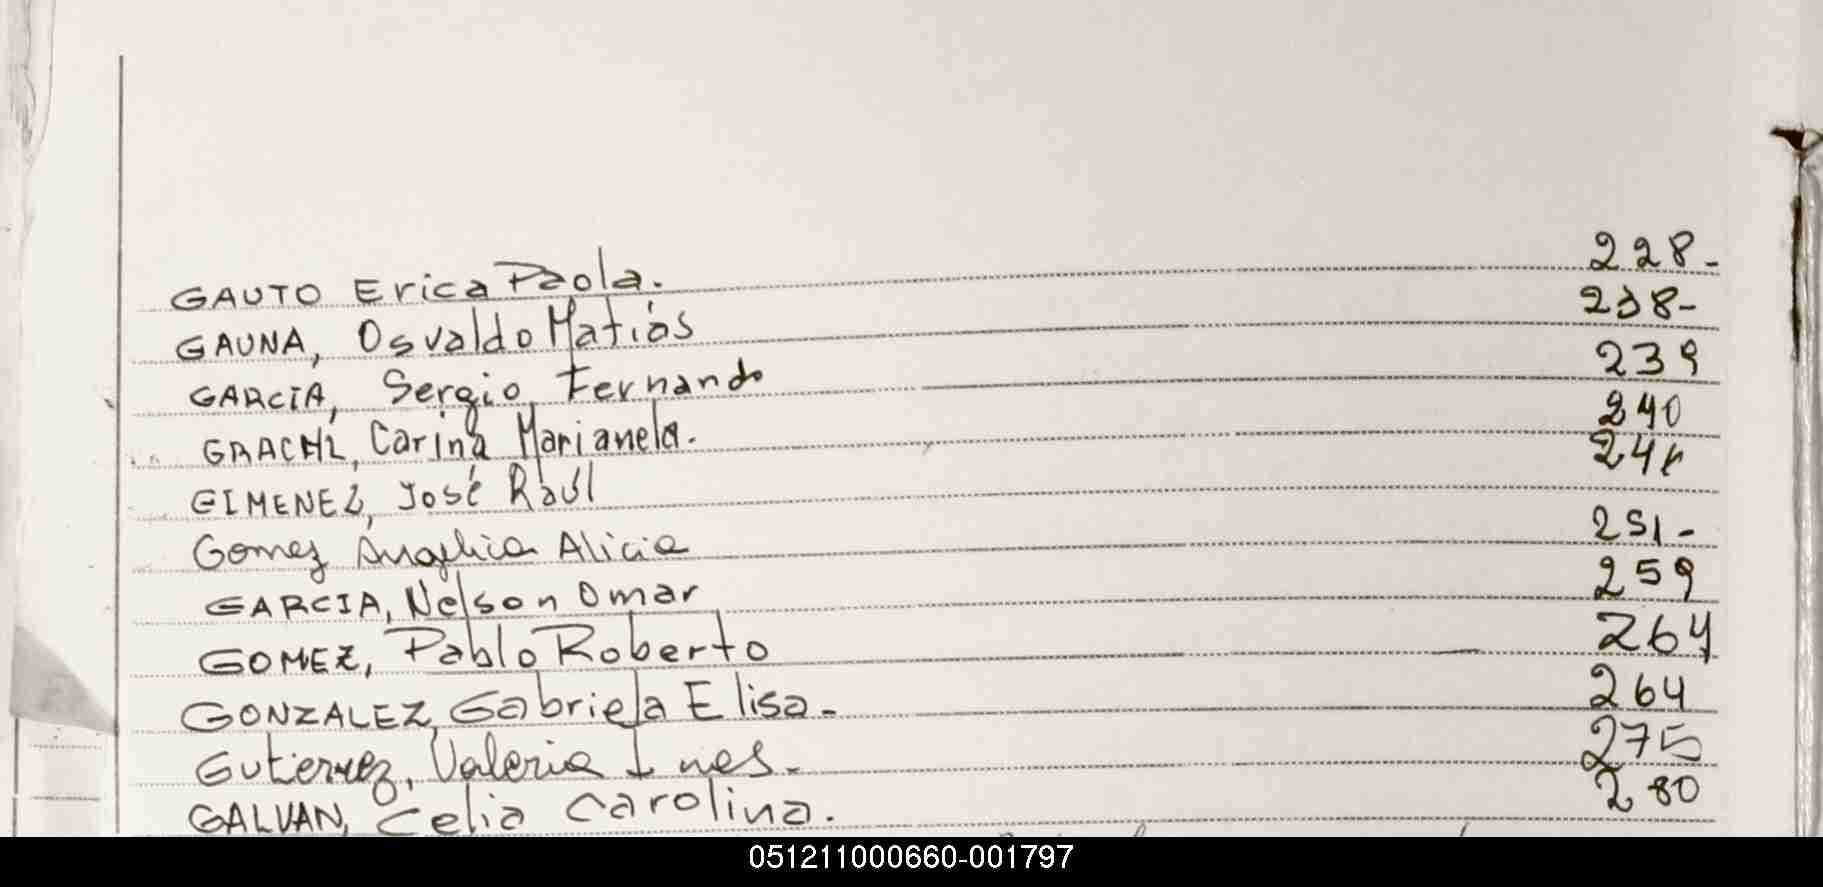 GAUTO Erica Paola. 228-
GAUNA, Osvaldo Matías 238-
GARCÍA, Sergio Fernando 239
GRACHI, Carina Marianela. 240
GIMENEZ, José Raúl 241
Gomez Angelica Alicia 251-
GARCIA, Nelson Omar 259
GOMEZ, Pablo Roberto 264
GONZALEZ, Gabriela Elisa- 264
Gutierrez, Valeria Ines- 275
GALVAN, Celia Carolina. 280
051211000660-001797